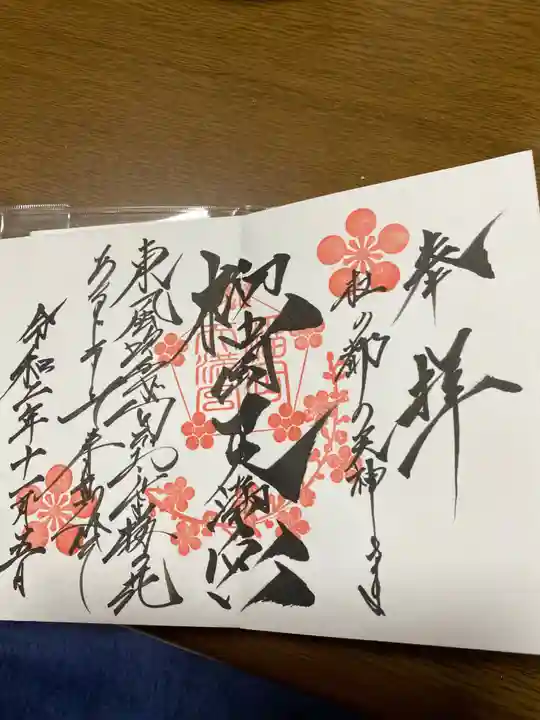 奉拝
杜の都の天神さま
榴岡天満宮
東風吹かば匂ひおこせよ梅の花
あるじなしとて春な忘れそ
令和二年十一月五日